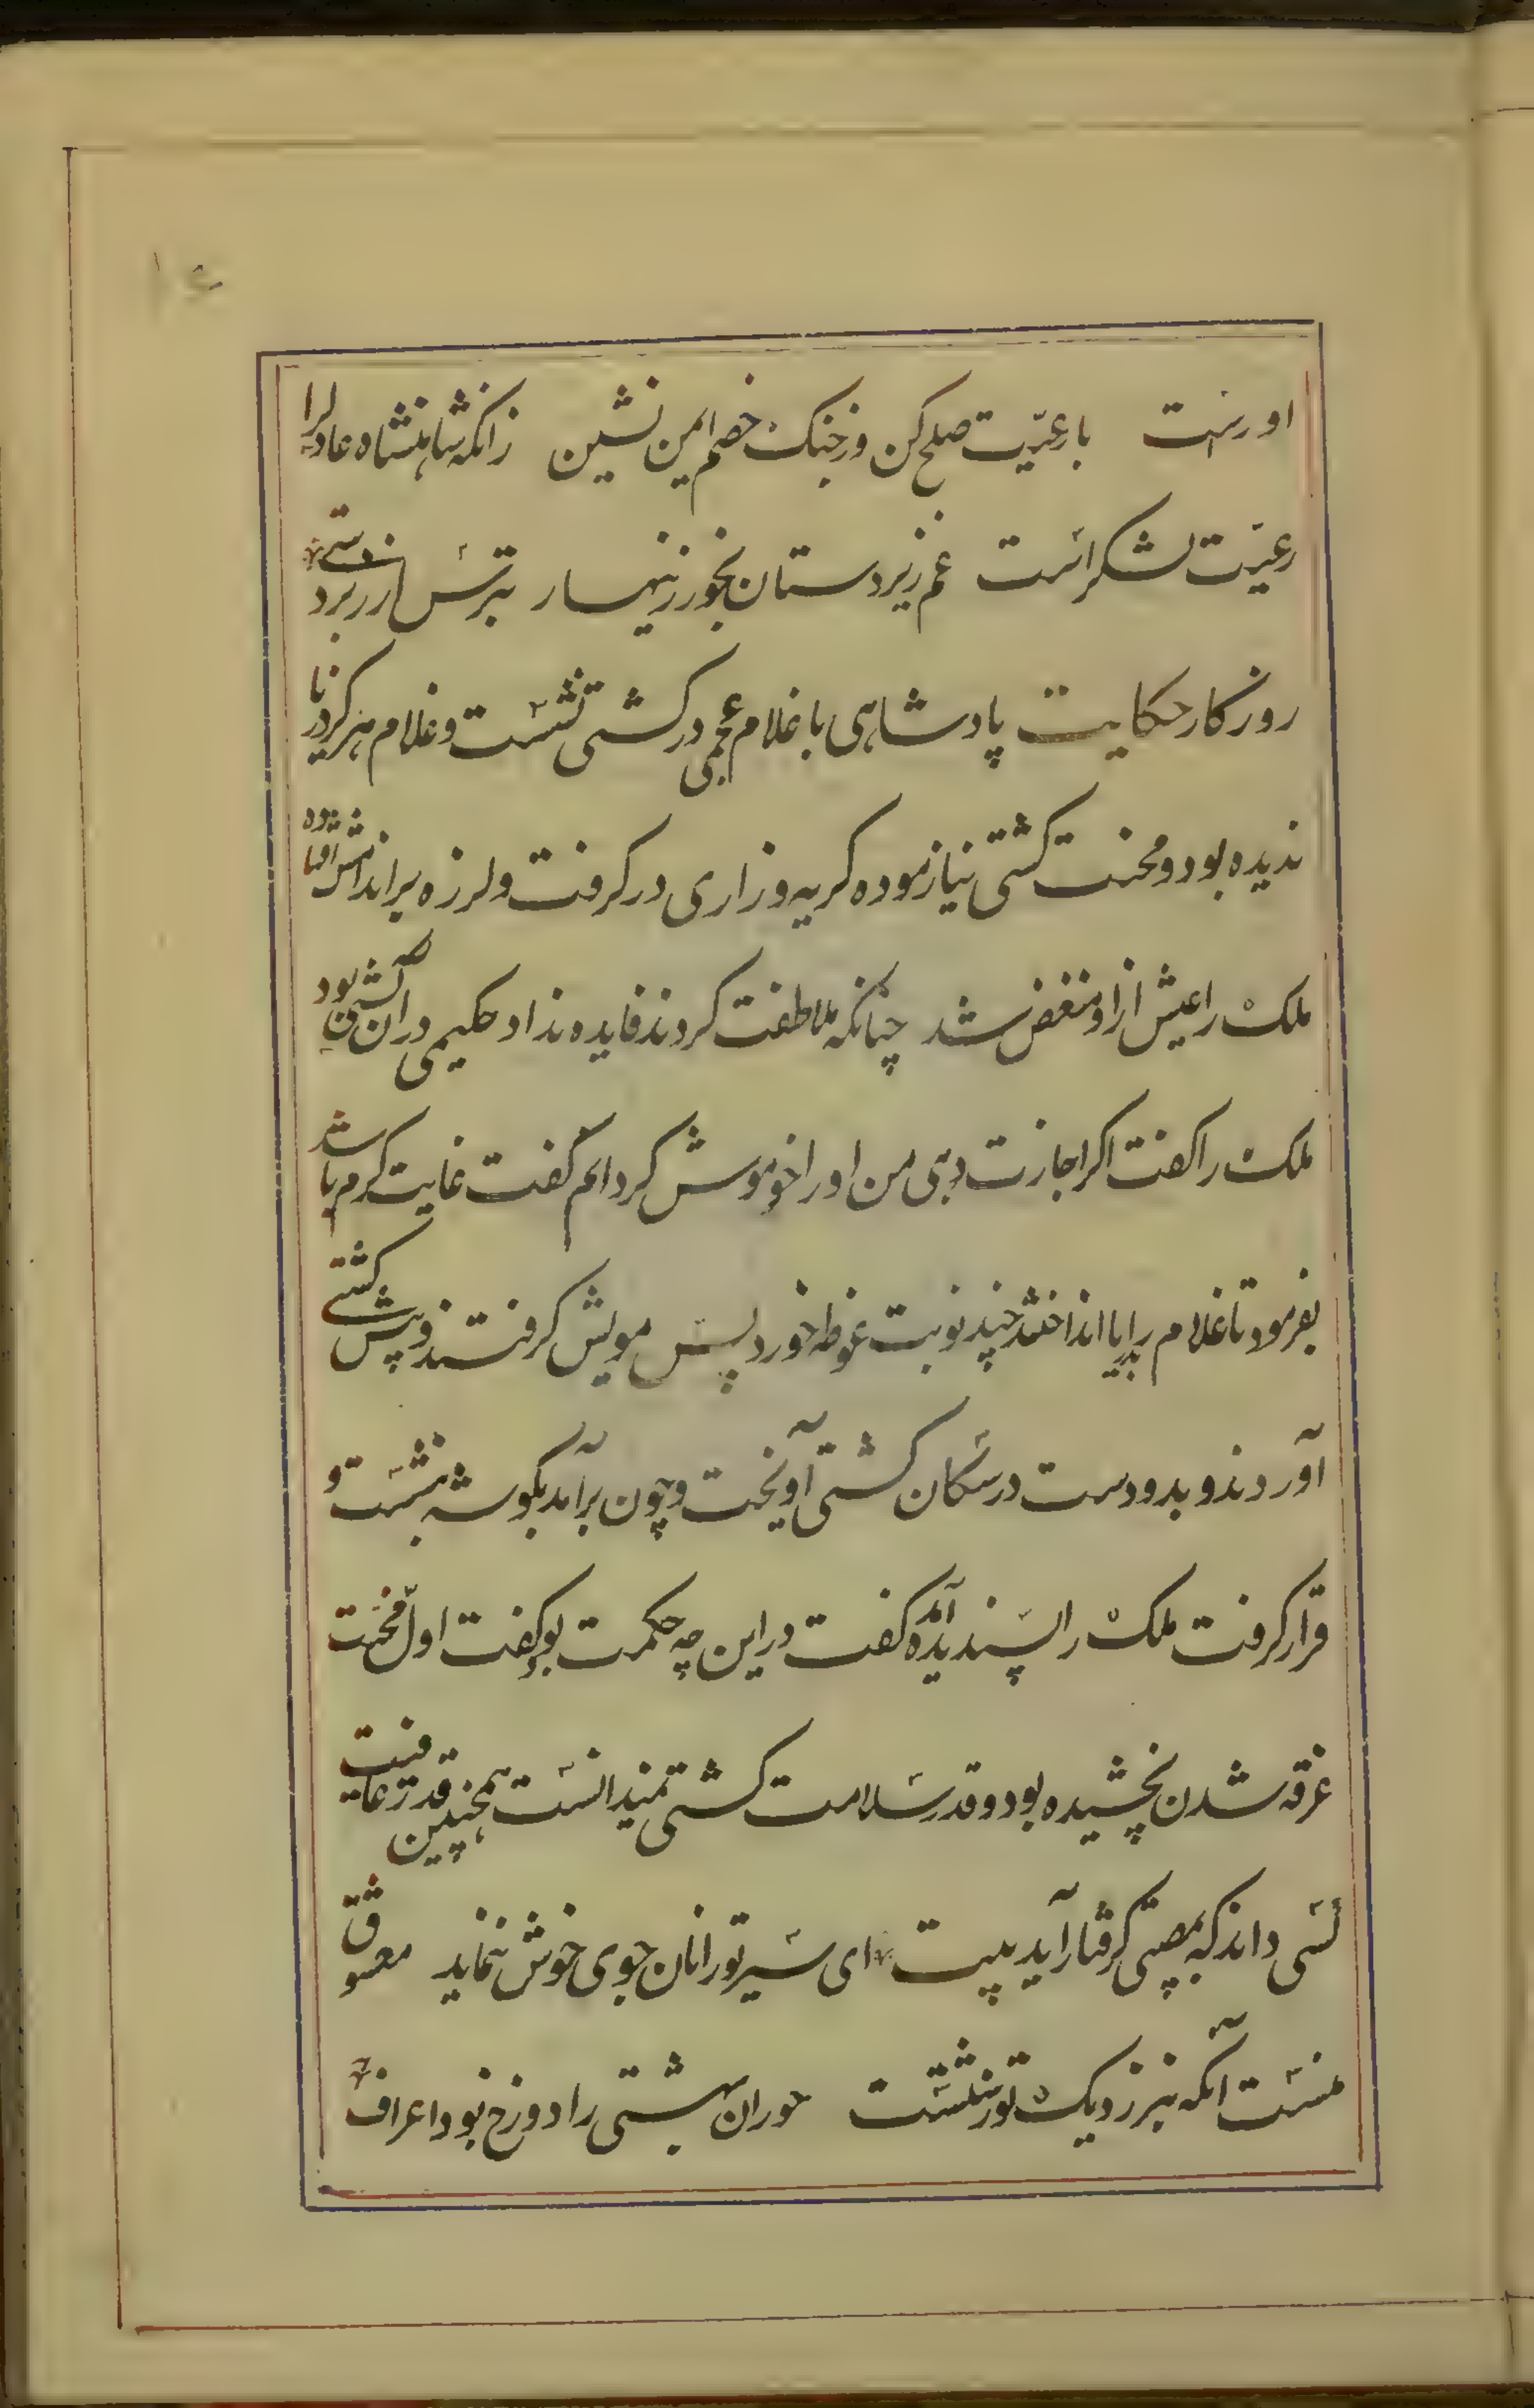 ۱۶
اورست با رعیّت صلح کن وز جنک خصم ایمن نشین زانکه شاهنشاه عادلرا
رعیّت لشکر است غم زیردستان بخور زینهار بترس از زبردستی
روزکار حکایت پادشاهی با غلام عجمی در کشتی نشست و غلام هرکز دریا
ندیده بود و محنت کشتی نیازموده کریه و زاری درکرفت و لرزه بر اندامش افتاده
ملک را عیش ازو منغض شد چنانکه ملاطفت کردند فایده نداد حکیمی در آن کشتی بود
ملک را کفت اکر اجازت دهی من او را خوموش کردانم کفت غایت کرم باشد
بفرمود تا غلام را بدریا انداختند چند نوبت غوطه خورد پس مویش کرفتند و پیش کشتی
آوردند و بدو دست در سکان کشتی آویخت و چون برآمد بکوشه بنشست و
قرار کرفت ملک را پسندیده آمد کفت در این چه حکمت بود کفت اول محنت
غرقه شدن نچشیده بود و قدر سلامت کشتی نمیدانست همچنین قدر عافیت
کسی داند که بمصیبتی کرفتار آید بیت ای سیر تو را نان جوی خوش ننماید معشوق
منست آنکه بنزدیک تو زشتست حوران بهشتی را دوزخ بود اعراف